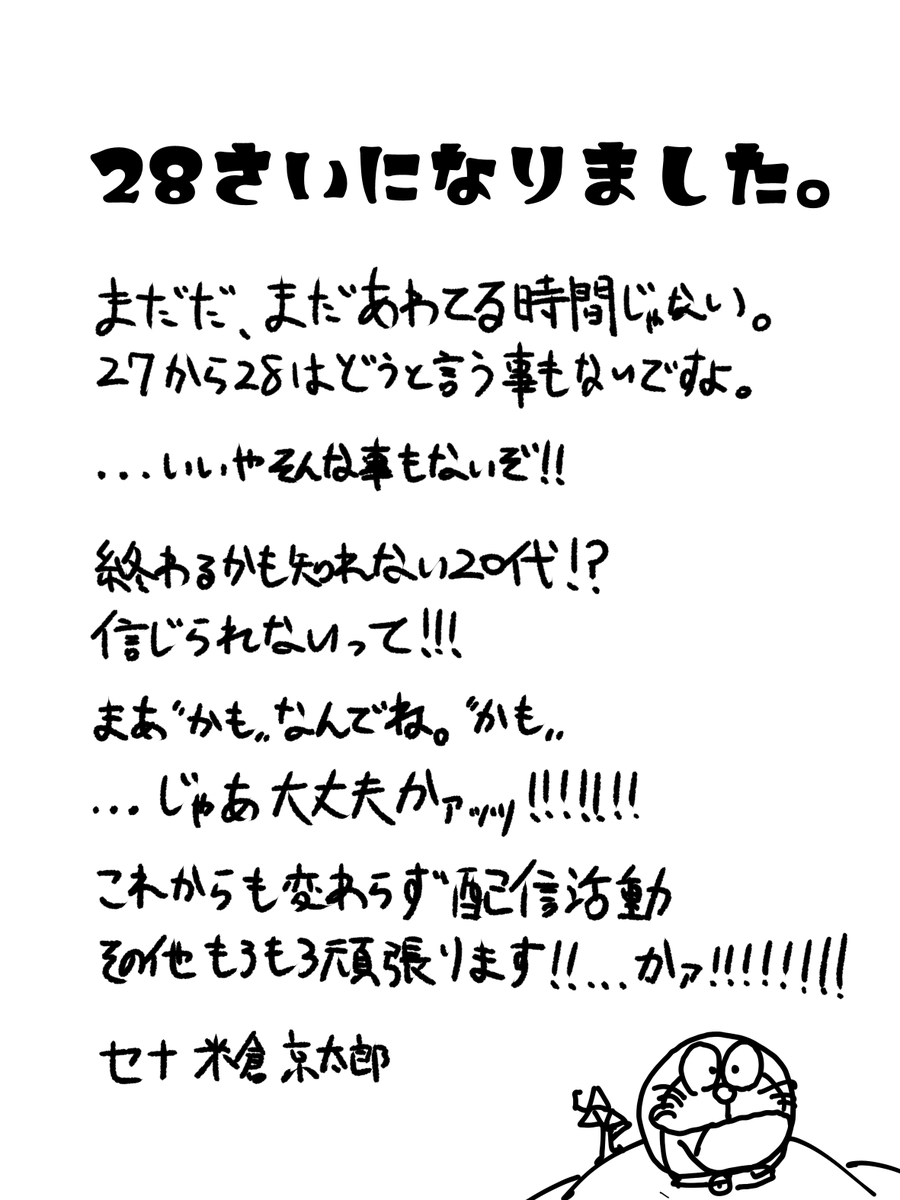 28さいになりました。
まだだ、まだあわてる時間じゃない。
27から28はどうと言う事もないですよ。
...いいやそんな事もないぞ!!
終わるかも知れない20代!?
信じられないって!!!
まあ〝かも〟なんでね。〝かも〟
...じゃあ大丈夫かァッッ!!!!!!!
これからも変わらず配信活動
その他もろもろ頑張ります!!...かァ!!!!!!!!
セナ 米倉 京太郎